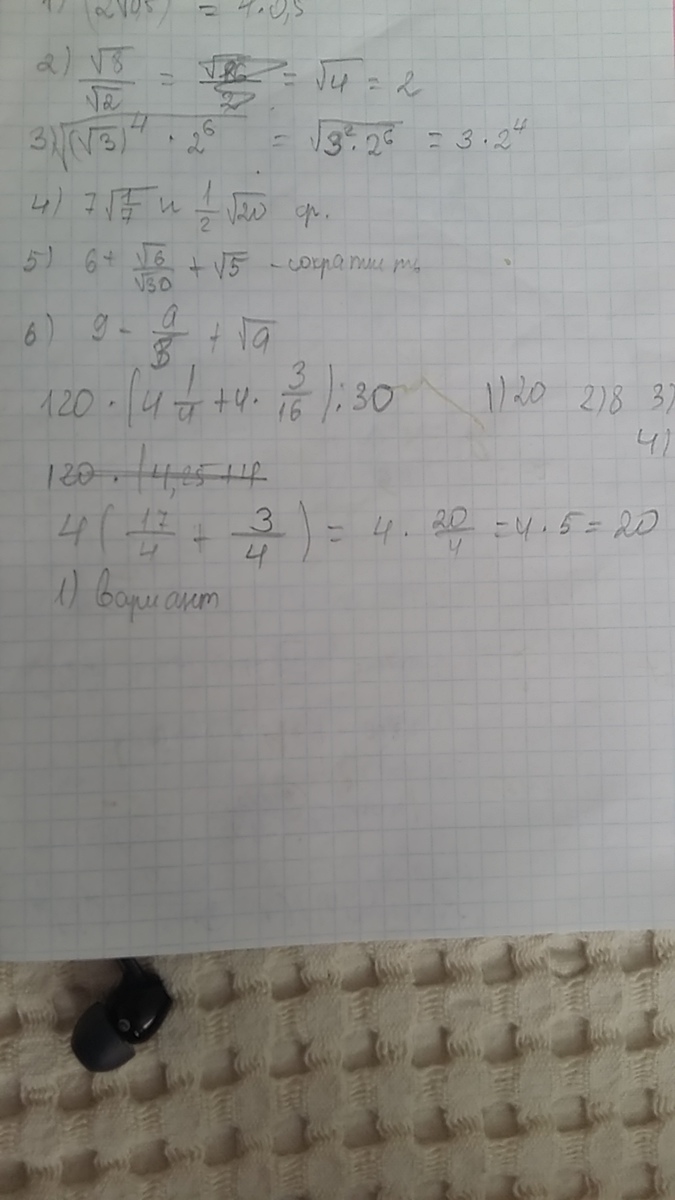 1) (2√0,5) = 4·0,5
2) √8/√2 = = √4 = 2
3) √(√3)⁴ · 2⁶ = √3²·2⁶ = 3·2⁴
4) 7√1/7 и 1/2 √20 ср.
5) 6 + √6/√30 + √5 - сократить
6) 9 - a/3 + √a
120 · (4 1/4 + 4 · 3/16) : 30 1) 20 2) 8 3)
4)
120 · (4,25 + 4
4 ( 17/4 + 3/4 ) = 4 · 20/4 = 4 · 5 = 20
1) вариант